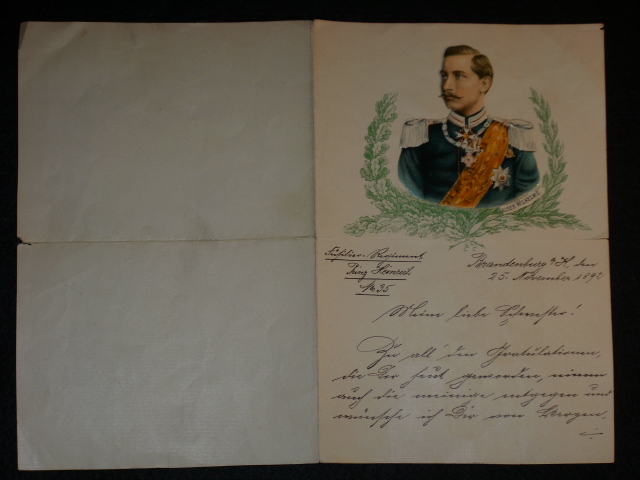 KAISER WILHELM II.
Füsilier-Regiment
Prinz Heinrich
No 35
Brandenburg a/H, den
25. November 1892
Meine liebe Schwester!
Zu all' den Gratulationen,
die Dir heut geworden, nimm
auch die meinige entgegen und
wünsche ich Dir von Herzen,